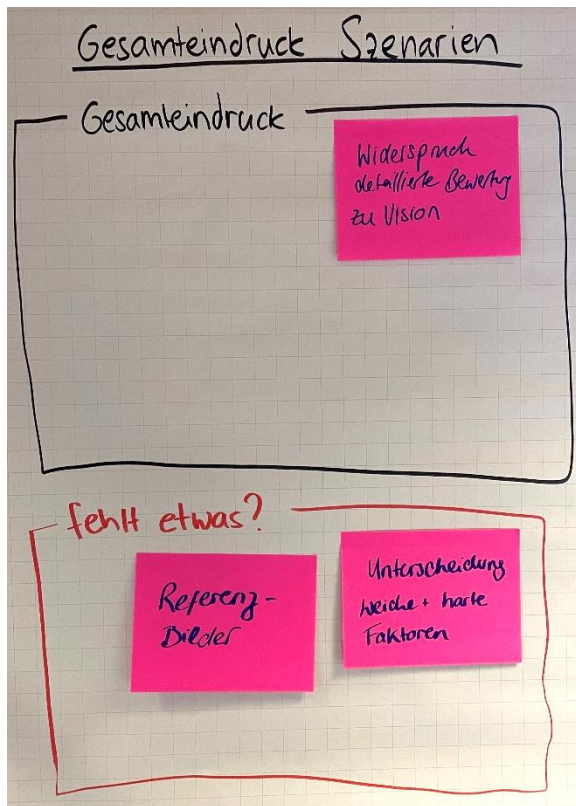 Gesamteindruck Szenarien
Gesamteindruck
Widerspruch
detaillierte Bewertung
zu Vision
fehlt etwas?
Referenz-
Bilder
Unterscheidung
weiche + harte
Faktoren